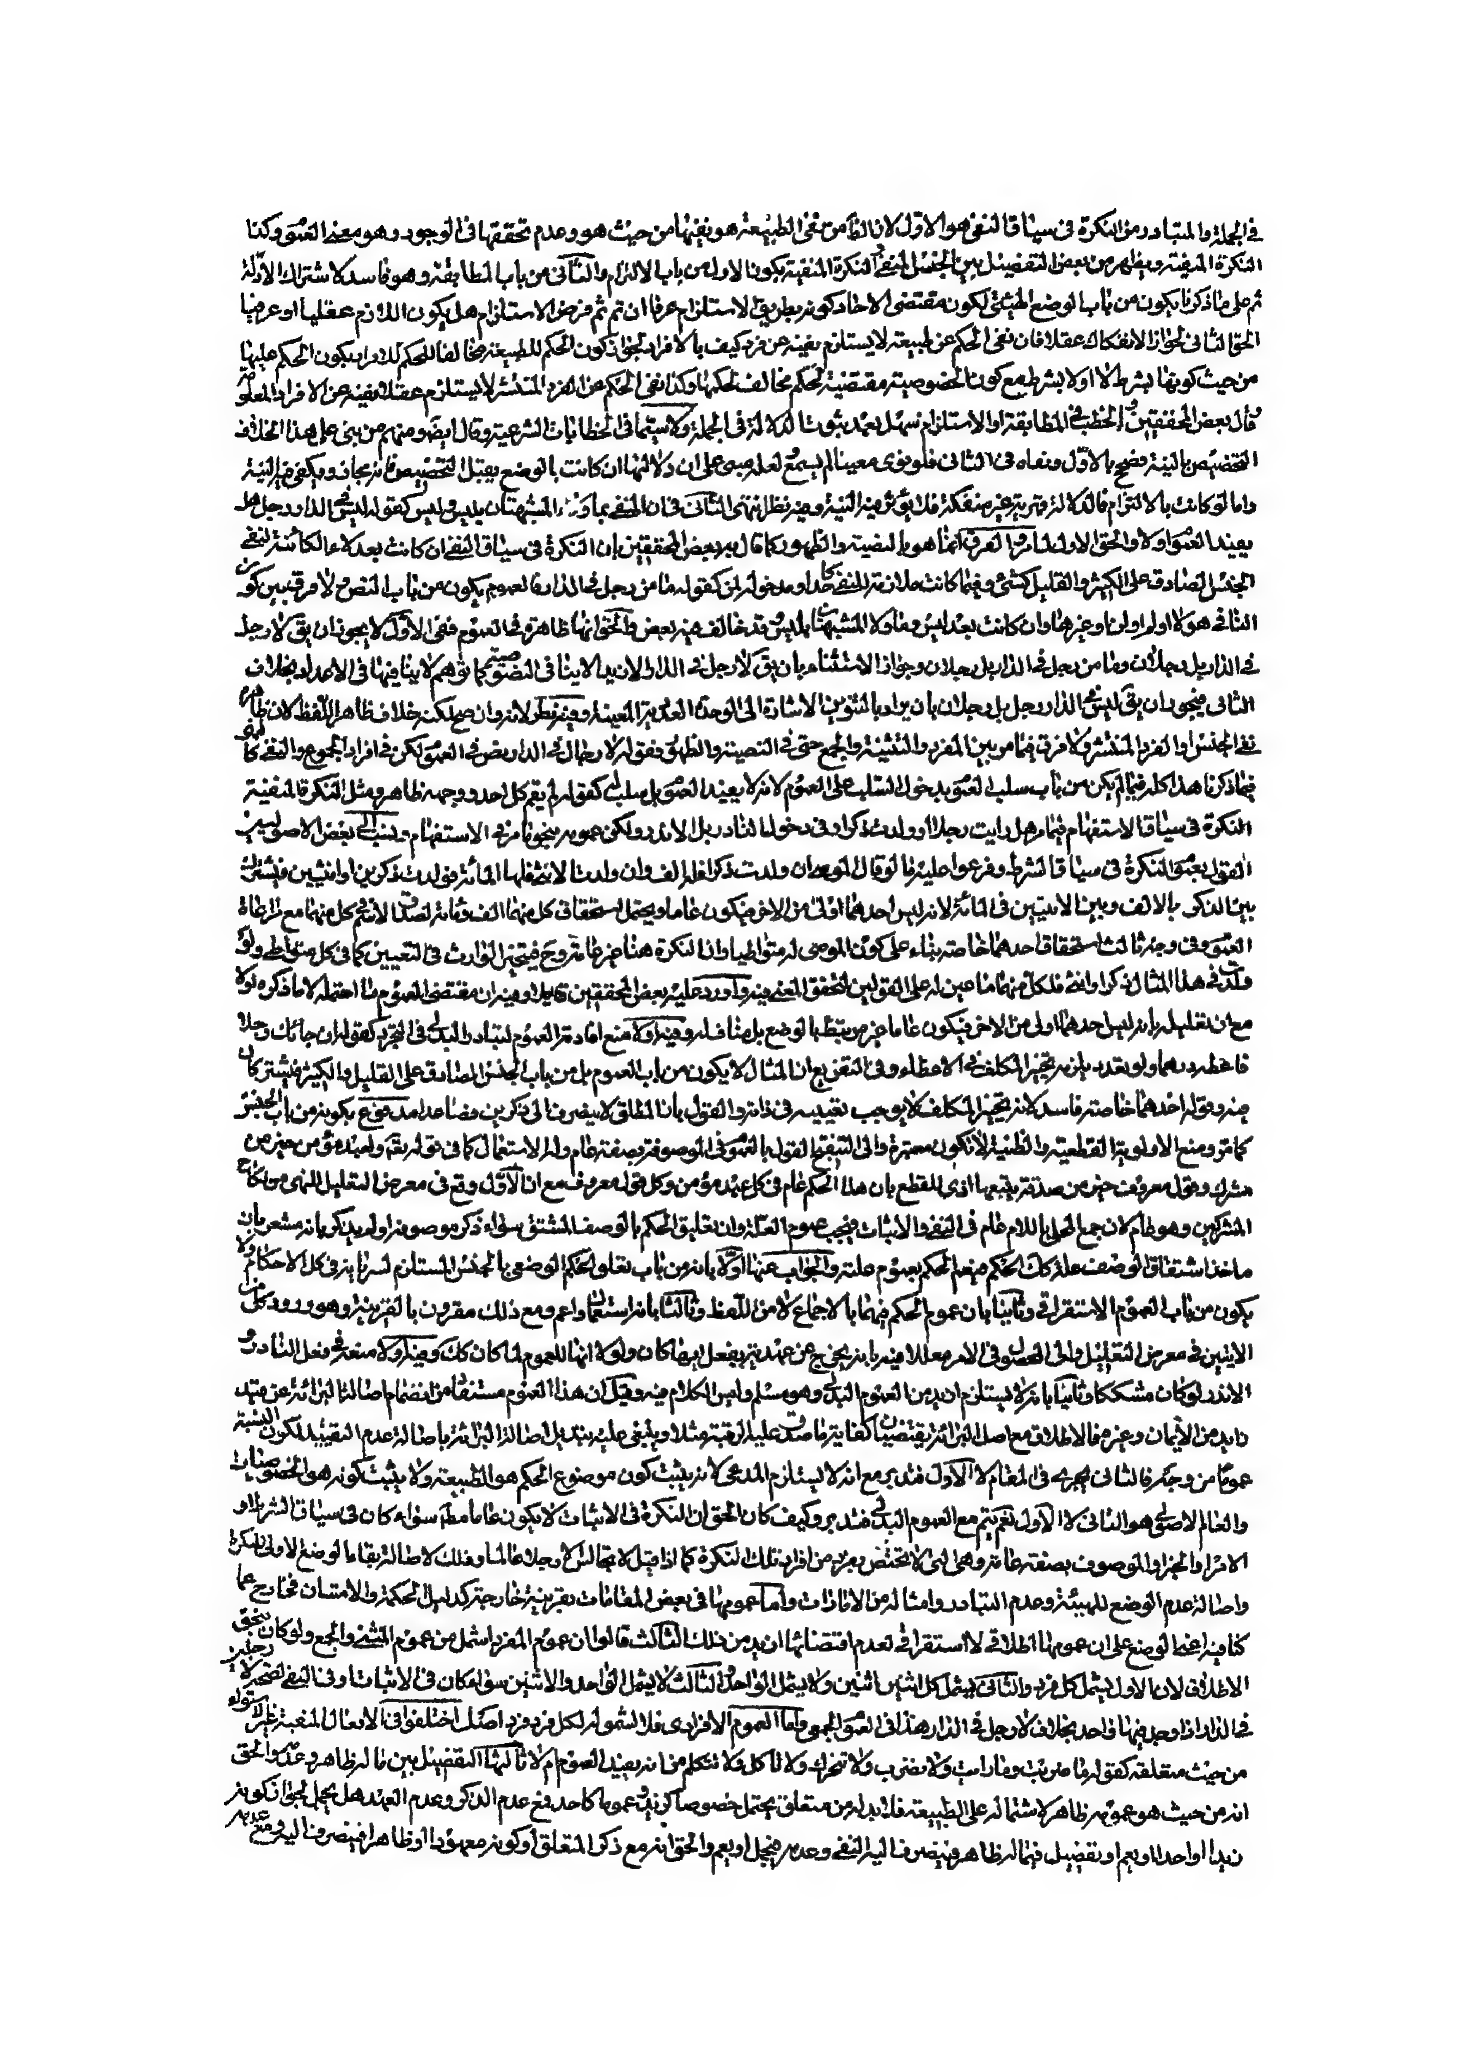 في الجملة والمتبادر من النكرة في سياق النفي هو الاول لان الغا من نفى الطبيعة هو نفيها من حيث هو وعدم تحققها في الوجود وهو معنى العموم وكذا
النكرة المنفية ويظهر من بعض التفصيل بين الجنس المنفي والنكرة المنفية بكون الاول من باب الالتزام والثاني من باب المطابقة وهو فاسد لاشتراك الادلة
ثم على ما ذكرنا يكون من باب الوضع الهيئي لكون مقتضى الاحاد كونه بطريق الاستلزام عرفا ان تم ثم فرض الاستلزام هل يكون اللازم عقليا او عرفيا
الحق الثاني لجواز الانفكاك عقلا فان نفى الحكم عن طبيعة لا يستلزم نفيه عن فرد كيف بالافراد لجواز كون الحكم للطبيعة مخالفا للحكم للافراد بكون الحكم عليها
من حيث كونها بشرط لا او لا بشرط مع كون الخصوصية مقتضية لحكم مخالف لحكمها وكذا نفى الحكم عن الفرد المنتشر لا يستلزم عقلا نفيه عن الافراد المعلومة
وقال بعض المحققين والخطب في المطابقة او الاستلزام سهل بعد ثبوت الدلالة في الجملة ولا سيما في الخطابات الشرعية وقال ايضا ومنهم من بنى على هذا الخلاف
التخصيص بالنية وصح بالاول ونفاه في الثاني فلو نوى معينا لم يسمع لعله مبنى على ان دلالتها ان كانت بالوضع يقبل التخصيص فانه مجاز ويكفي فيه النية
واما لو كانت بالالتزام فالدلالة قهرية غير منفكة فلا يؤثر فيه النية وفيه نظر
يفيد العموم اولا والحق الاول لما مر والعرف انما هو بالنصية والظهور كما قال به بعض المحققين ان النكرة في سياق النفي ان كانت بعد لا الكائنة لنفي
الجنس الصادق على الكثير والقليل كشئ وفيما كانت ملازمة للنفي كاحد او مدخولة لمن كقوله ما من رجل في الدار فالعموم يكون من باب النص ولا فرق بين كون
النافي هو لا او لم او لن او غيرها وان كانت بعد ليس وما ولا المشبهتان بليس فقد خالف فيه بعض والحق انها ظاهرة في العموم ففي الاول لا يجوز ان يق لا رجل
في الدار بل رجلان وما من رجل في الدار بل رجلان وجواز الاستثناء بان يق لا رجل في الدار الا زيد لا ينافي النصوصية كما توهم لا ينافيها في الاعداد بخلاف
الثاني فيجوز ان يق ليس في الدار رجل بل رجلان بان يراد بالتنوين الاشارة الى الوحدة العددية المعينة وفيه نظر لانه وان صح لكنه خلاف ظاهر اللفظ لان ظاهره
نفى الجنس او الفرد المنتشر ولا فرق فيما مر بين المفرد والتثنية والجمع حتى في النصية والظهور فقوله لا رجال في الدار نص في العموم لكن في افراد الجموع والنفي كا
فيما ذكرنا هذا كله فيما لم يكن من باب سلب العموم بدخول السلب على العموم لانه لا يفيد العموم بل سلبه كقوله لم يقم كل احد ووجهه ظاهر ومثل النكرة المنفية
النكرة في سياق الاستفهام فيما مر هل رايت رجلا او ولدت ذكرا وفي دخول النادر بل الاندر ولكن عمومه فيجوز ما مر في الاستفهام ونسب الى بعض الاصوليين
القول بعموم النكرة في سياق الشرط وفرعوا عليه ما لو قال الموصي ان ولدت ذكرا فله الف وان ولدت الانثى فلها المائة فولدت ذكرين او انثيين فيشترك
بين الذكرين بالالف وبين الانثيين في المائة لانه ليس احدهما اولى من الاخر فيكون عاما ويحتمل استحقاق كل منهما الف ومائة لصدق الانثى كل منهما مع مراعاة
العموم وفي وجه ثالث استحقاق احدهما خاصة بناء على كون الموصى له متواطيا وان النكرة هنا غير عامة وح فيتخير الوارث في التعيين كما في كل متواطي ولو
ولدت في هذا المثال ذكرا وانثى فلكل منهما ما عين له على القولين لتحقق المعنى فيه واورد عليه بعض المحققين وفيه ان مقتضى العموم ما احتمله لا ما ذكره اولا
مع ان تعليله بانه ليس احدهما اولى من الاخر فيكون عاما غير مرتبط بالوضع بل مناف له وفيه اولا منع افادته العموم لتبادر البدلى في العرف كقوله ان جائك رجل
فاعطه درهما ولو تعدد يلزمه تخيير المكلف في الاعطاء وفي التفريع ان المثال لا يكون من باب العموم بل من باب الجنس الصادق على القليل والكثير فيشتركان
فيه وقوله احدهما خاصة فاسد لانه تخيير المكلف لا يوجب تقييده في ذاته والقول بان المطلق لا ينصرف الى ذكرين فصاعدا مدفوع بكونه من باب الجنس
كما مر ومنع الاولوية القطعية والظنية لا تكون معتبرة والى القول بالعموم في الموصوفة بصفة عام ولو الاستعمال كما في قوله تع ولعبد مؤمن خير من
مشرك وقول معروف خير من صدقة يتبعها اذى للقطع بان هذا الحكم عام في كل عبد مؤمن وكل قول معروف مع ان الاول وقع في معرض التعليل للنهي عن نكاح
المشركين وهو عام لان جمع المحلى باللام عام في النفي والاثبات فيجب عموم العلة وان تعليق الحكم بالوصف المشتق سواء ذكر موصوفه او لم يذكر بانه مشعر بان
ماخذ اشتقاق الوصف علة لذلك الحكم فيعم الحكم بعموم علته والجواب عنها اولا بانه من باب تعلق الحكم الوضعي بالجنس المستلزم لسريانه في كل الاحكام ولا
يكون من باب العموم الاستغراقي وثانيا بان عموم الحكم فيهما بالاجماع لا من اللفظ وثالثا بانه استعمال اعم ومع ذلك مقرون بالقرينة وهو ورود كل من
الايتين في معرض التعليل والى العموم في الامر معللا فيه بانه يخرج عن عهدته بفعل ايها كان ولولا انها للعموم لما كان كذلك وفيه اولا منعه في فعل النادر و
الاندر لو كان مشككا وثانيا بانه لا يستلزم ازيد من العموم البدلي وهو مسلم وليس الكلام فيه وقيل ان هذا العموم مستفاد من انضمام اصالة البرائة عن قيد
زايد من الايمان وغيره فالاطلاق مع اصل البرائة يقتضيان كفاية ما صدق عليه الرقبة مثلا وينبغي عليه تبديل اصالة البرائة باصالة عدم التقييد لكون النسبة
عموما من وجه فالثاني يجري في المقام لا الاول فتدبر مع انه لا يستلزم المدعى لانه يثبت كون موضوع الحكم هو الطبيعة ولا يثبت كونه هو الخصوصيات
والعام الاصولي هو الثاني لا الاول نعم يتم مع العموم البدلي فتدبر وكيف كان الحق ان النكرة في الاثبات لا يكون عاما مطلقا سواء كان في سياق الشرط او
الامر او الخبر او الموصوف بصفة عامة وهي التي لا تختص بفرد من افراد تلك النكرة كما اذا قيل لا تجالس الا رجلا عالما وذلك لاصالة بقاء الوضع الاولى للنكرة
واصالة عدم الوضع للهيئة وعدم التبادر وامثاله من الامارات واما عمومها في بعض المقامات بقرينة خارجة كدليل الحكمة والامتنان فخارج عما
كنا فيه اعني الوضع على ان عمومها اطلاقي لا استغراقي لعدم اقتضائها ازيد من ذلك الثالث قالوا ان عموم المفرد اشمل من عموم المثنى والجمع ولو كان
الاطلاقي لان الاول يشمل كل فرد والثاني يشمل كل اثنين اثنين ولا يشمل الواحد والثالث لا يشمل الواحد والاثنين سواء كان في الاثبات او في النفي لصحة لا رجلين
في الدار اذا وجد فيها واحد بخلاف لا رجل في الدار هذا في العموم الجمعي واما العموم الافرادي فلا لشموله لكل فرد فرد اصل اختلفوا في الافعال المنفية
من حيث متعلقه كقوله ما ضربت وما رايت ولا تضرب ولا تتحرك ولا تاكل ولا تتكلم من انه يفيد العموم ام لا ثالثها التفصيل بين ما له ظاهر وعدمه والحق
انه من حيث هو عمومه ظاهر لاشتماله على الطبيعة فلا بد له من متعلق يحتمل خصوصا كزيد وعموما كاحد فمع عدم الذكر وعدم العهد هل يحمل لجواز كونه
زيدا او احدا او يعم او تفصيل فيما له ظاهر فينصرف اليه النفي وعدمه فيجمل او يعم والحق انه مع ذكر المتعلق او كونه معهودا او ظاهرا فينصرف اليه ومع عدمه